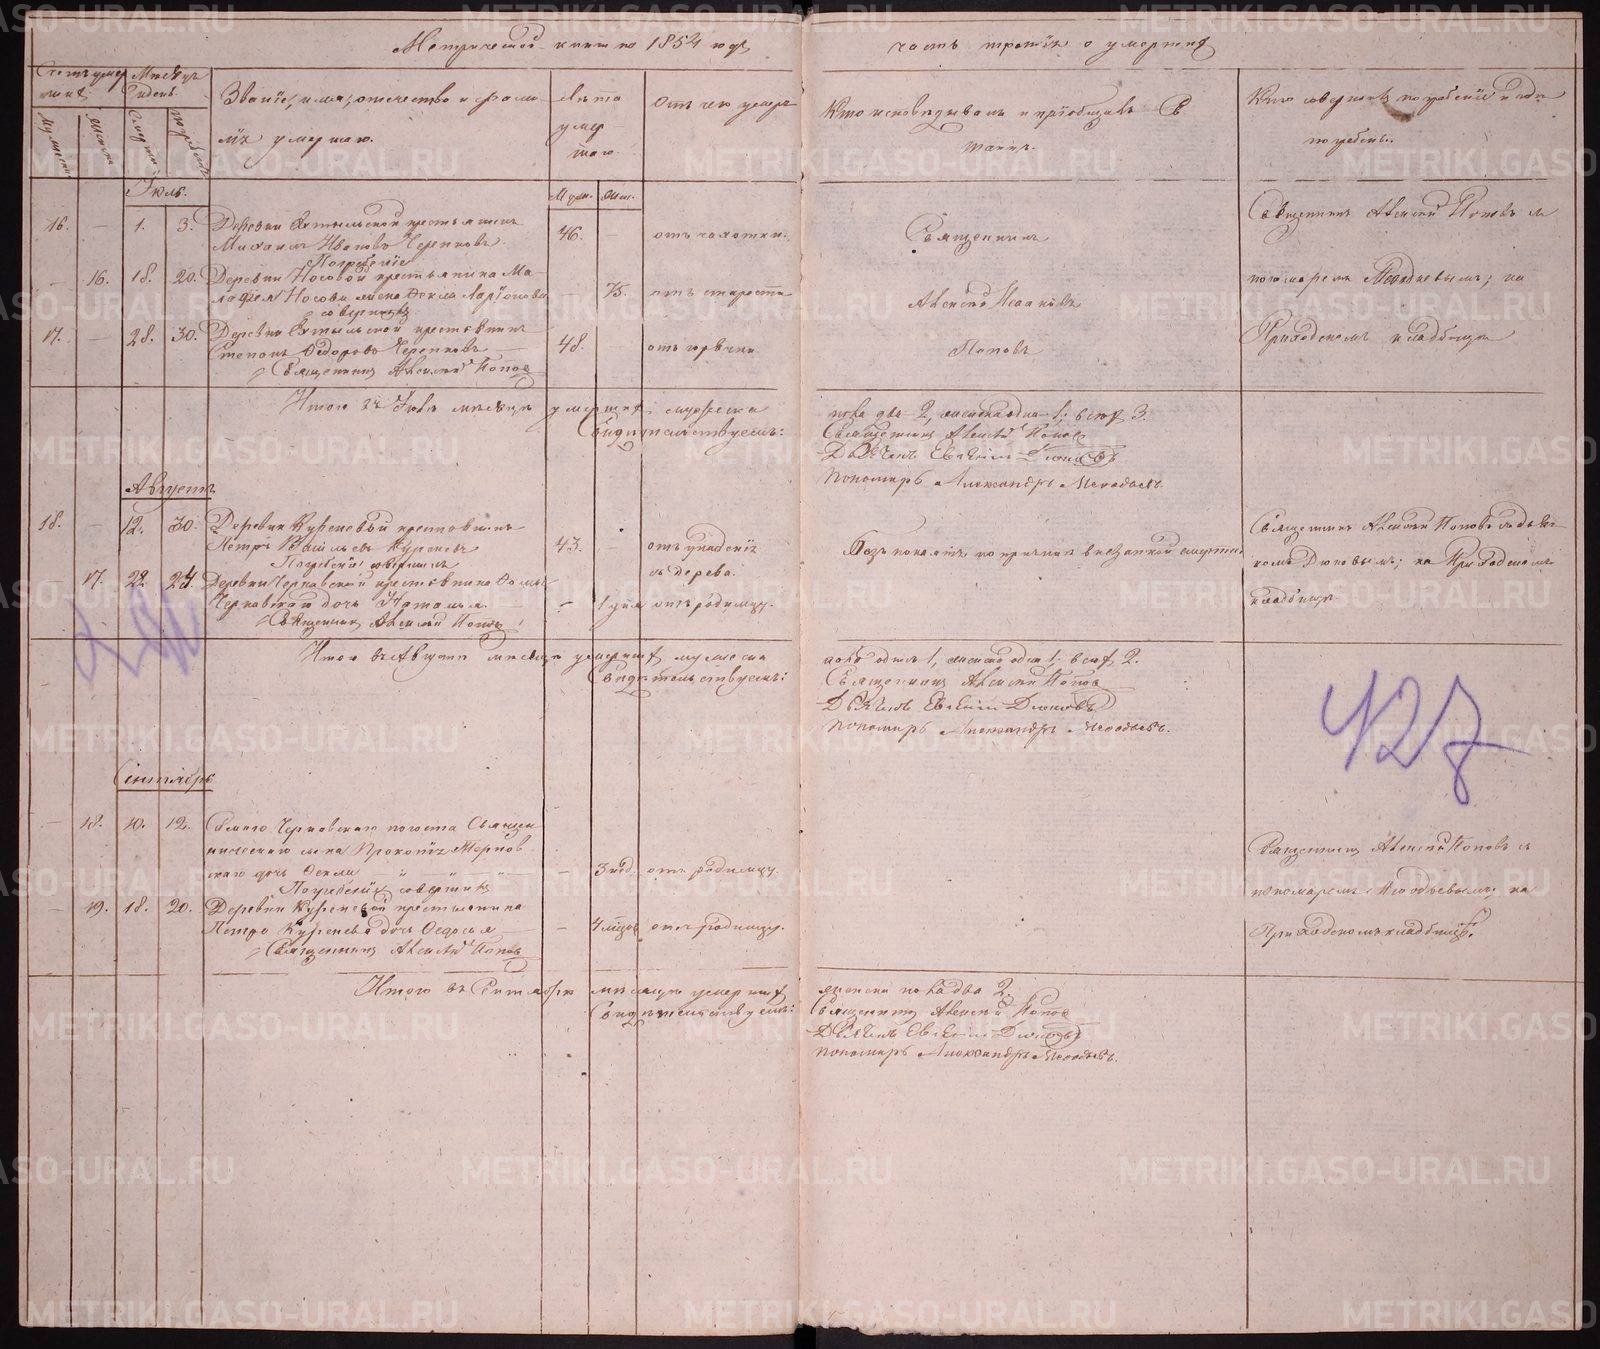 Метрической книги на 1854 годъ, часть третія о умершихъ
Счетъ умершихъ
Мѣсяцъ и день.
Званіе, имя, отечество и фамилія умершаго.
Лѣта умершаго.
Отъ чего умеръ
Кто исповѣдывалъ и пріобщалъ Св. таинъ.
Кто совершалъ погребеніе и гдѣ погребены.
Іюль.
Муж. Жен.
16. — 1. 3. Деревни крестьянинъ
Михаилъ Ивановъ Черепковъ.
46. — отъ чахотки.
Священникъ
Священникъ Алексѣй Поповъ съ
Погребеніе
— 16. 18. 20. Деревни Носовой крестьянина
Носова жена Ѳекла Ларіонова
— 75. отъ старости
Алексѣй Поповъ
пономаремъ на
совершалъ
17. — 28. 30. Деревни крестьянинъ
Степанъ Ѳедоровъ Черепковъ
48. — отъ горячки
Приходскомъ кладбищѣ
Священникъ Алексѣй Поповъ
Итого въ Іюлѣ мѣсяцѣ умершихъ мужеска пола два 2, женска одна 1; всего 3.
Свидѣтельствуемъ: Священникъ Алексѣй Поповъ
Дьячекъ Евгеній
Пономарь Александръ
Августъ
18. — 12. 30. Деревни Куреневой крестьянинъ
Петръ Васильевъ Куреневъ
43. — отъ упаденія
съ дерева.
Безъ покаянія по причинѣ внезапной смерти.
Священникъ Алексѣй Поповъ съ дьячкомъ
на Приходскомъ
кладбищѣ
Погребеніе совершалъ
— 17. 22. 24. Деревни Черновской крестьянина
дочь Наталья
— отъ родимцу.
Священникъ Алексѣй Поповъ
Итого въ Августѣ мѣсяцѣ умершихъ мужеска пола одинъ 1, женска одна 1; всего 2.
Свидѣтельствуемъ: Священникъ Алексѣй Поповъ
Дьячекъ Евгеній
Пономарь Александръ
427
Сентябрь
— 18. 10. 12. Самого Черновскаго погоста Священническаго сына Прокопія
дочь Ѳекла
— 3 нѣд. отъ родимцу.
Священникъ Алексѣй Поповъ съ
пономаремъ на
Приходскомъ кладбищѣ.
Погребеніе совершалъ
— 19. 18. 20. Деревни Куреневой крестьянина
Петра Куренева дочь Ѳедосья
— 4 мѣсяц. отъ родимцу.
Священникъ Алексѣй Поповъ
Итого въ Сентябрѣ мѣсяцѣ умершихъ женска пола два 2.
Свидѣтельствуемъ: Священникъ Алексѣй Поповъ
Дьячекъ Евгеній
Пономарь Александръ
METRIKI.GASO-URAL.RU